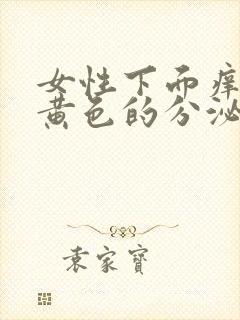 女性下面痒
黄色的分泌
袁家宝